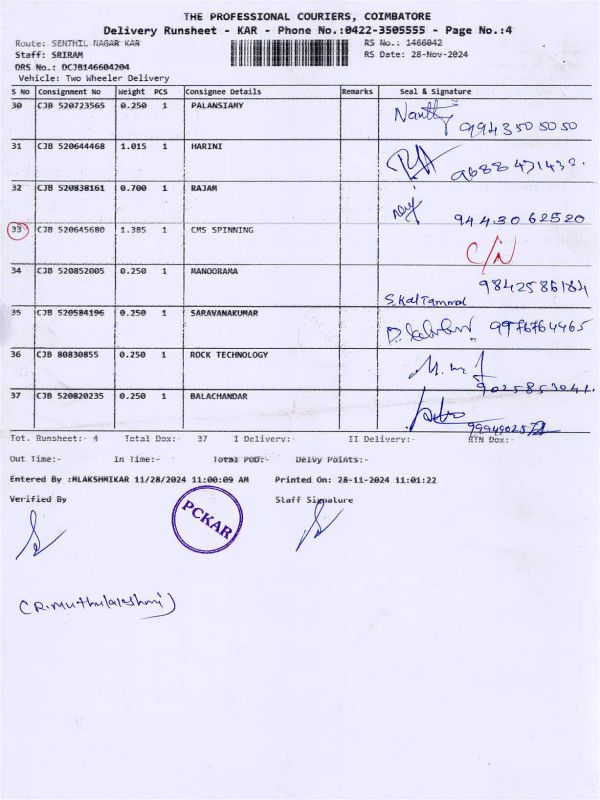 THE PROFESSIONAL COURIERS, COIMBATORE
Delivery Runsheet - KAR - Phone No.:0422-3505555 - Page No.:4
Route: SENTHIL NAGAR KAR RS No.: 1466042
Staff: SRIRAM RS Date: 28-Nov-2024
DRS No.: DCJB146604204
Vehicle: Two Wheeler Delivery
S No Consignment No Weight PCS Consignee Details Remarks Seal & Signature
30 CJB 520723565 0.250 1 PALANSIAMY 9943505050
31 CJB 520644468 1.015 1 HARINI 9688471432.
32 CJB 520838161 0.700 1 RAJAM 9443062520
33 CJB 520645680 1.385 1 CMS SPINNING C/N
34 CJB 520852005 0.250 1 MANOORAMA 9842586184
35 CJB 520584196 0.250 1 SARAVANAKUMAR 9976764465
36 CJB 80830855 0.250 1 ROCK TECHNOLOGY 9025853041.
37 CJB 520820235 0.250 1 BALACHANDAR
Tot. Runsheet:- 4 Total Dox:- 37 I Delivery:- II Delivery:- RTN Dox:-
Out Time:- In Time:- Total POD:- Delvy Points:-
Entered By :MLAKSHMIKAR 11/28/2024 11:00:09 AM Printed On: 28-11-2024 11:01:22
Verified By Staff Signature
PCKAR
(R.Muthulakshmi)